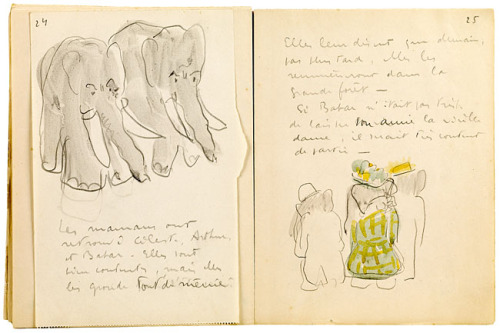 24
Les mamans ont
retrouvé Céleste, Arthur
et Babar. Elles sont
bien contentes, mais elles
les grondent tout de même.
25
Elles leur disent que demain,
pas plus tard, elles les
remmèneront dans la
grande forêt —
Si Babar n'était pas triste
de laisser son amie la vieille
dame, il serait très content
de partir —